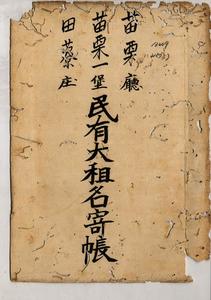 苗栗廳
苗栗一堡
田藔庄
民有大租名寄帳